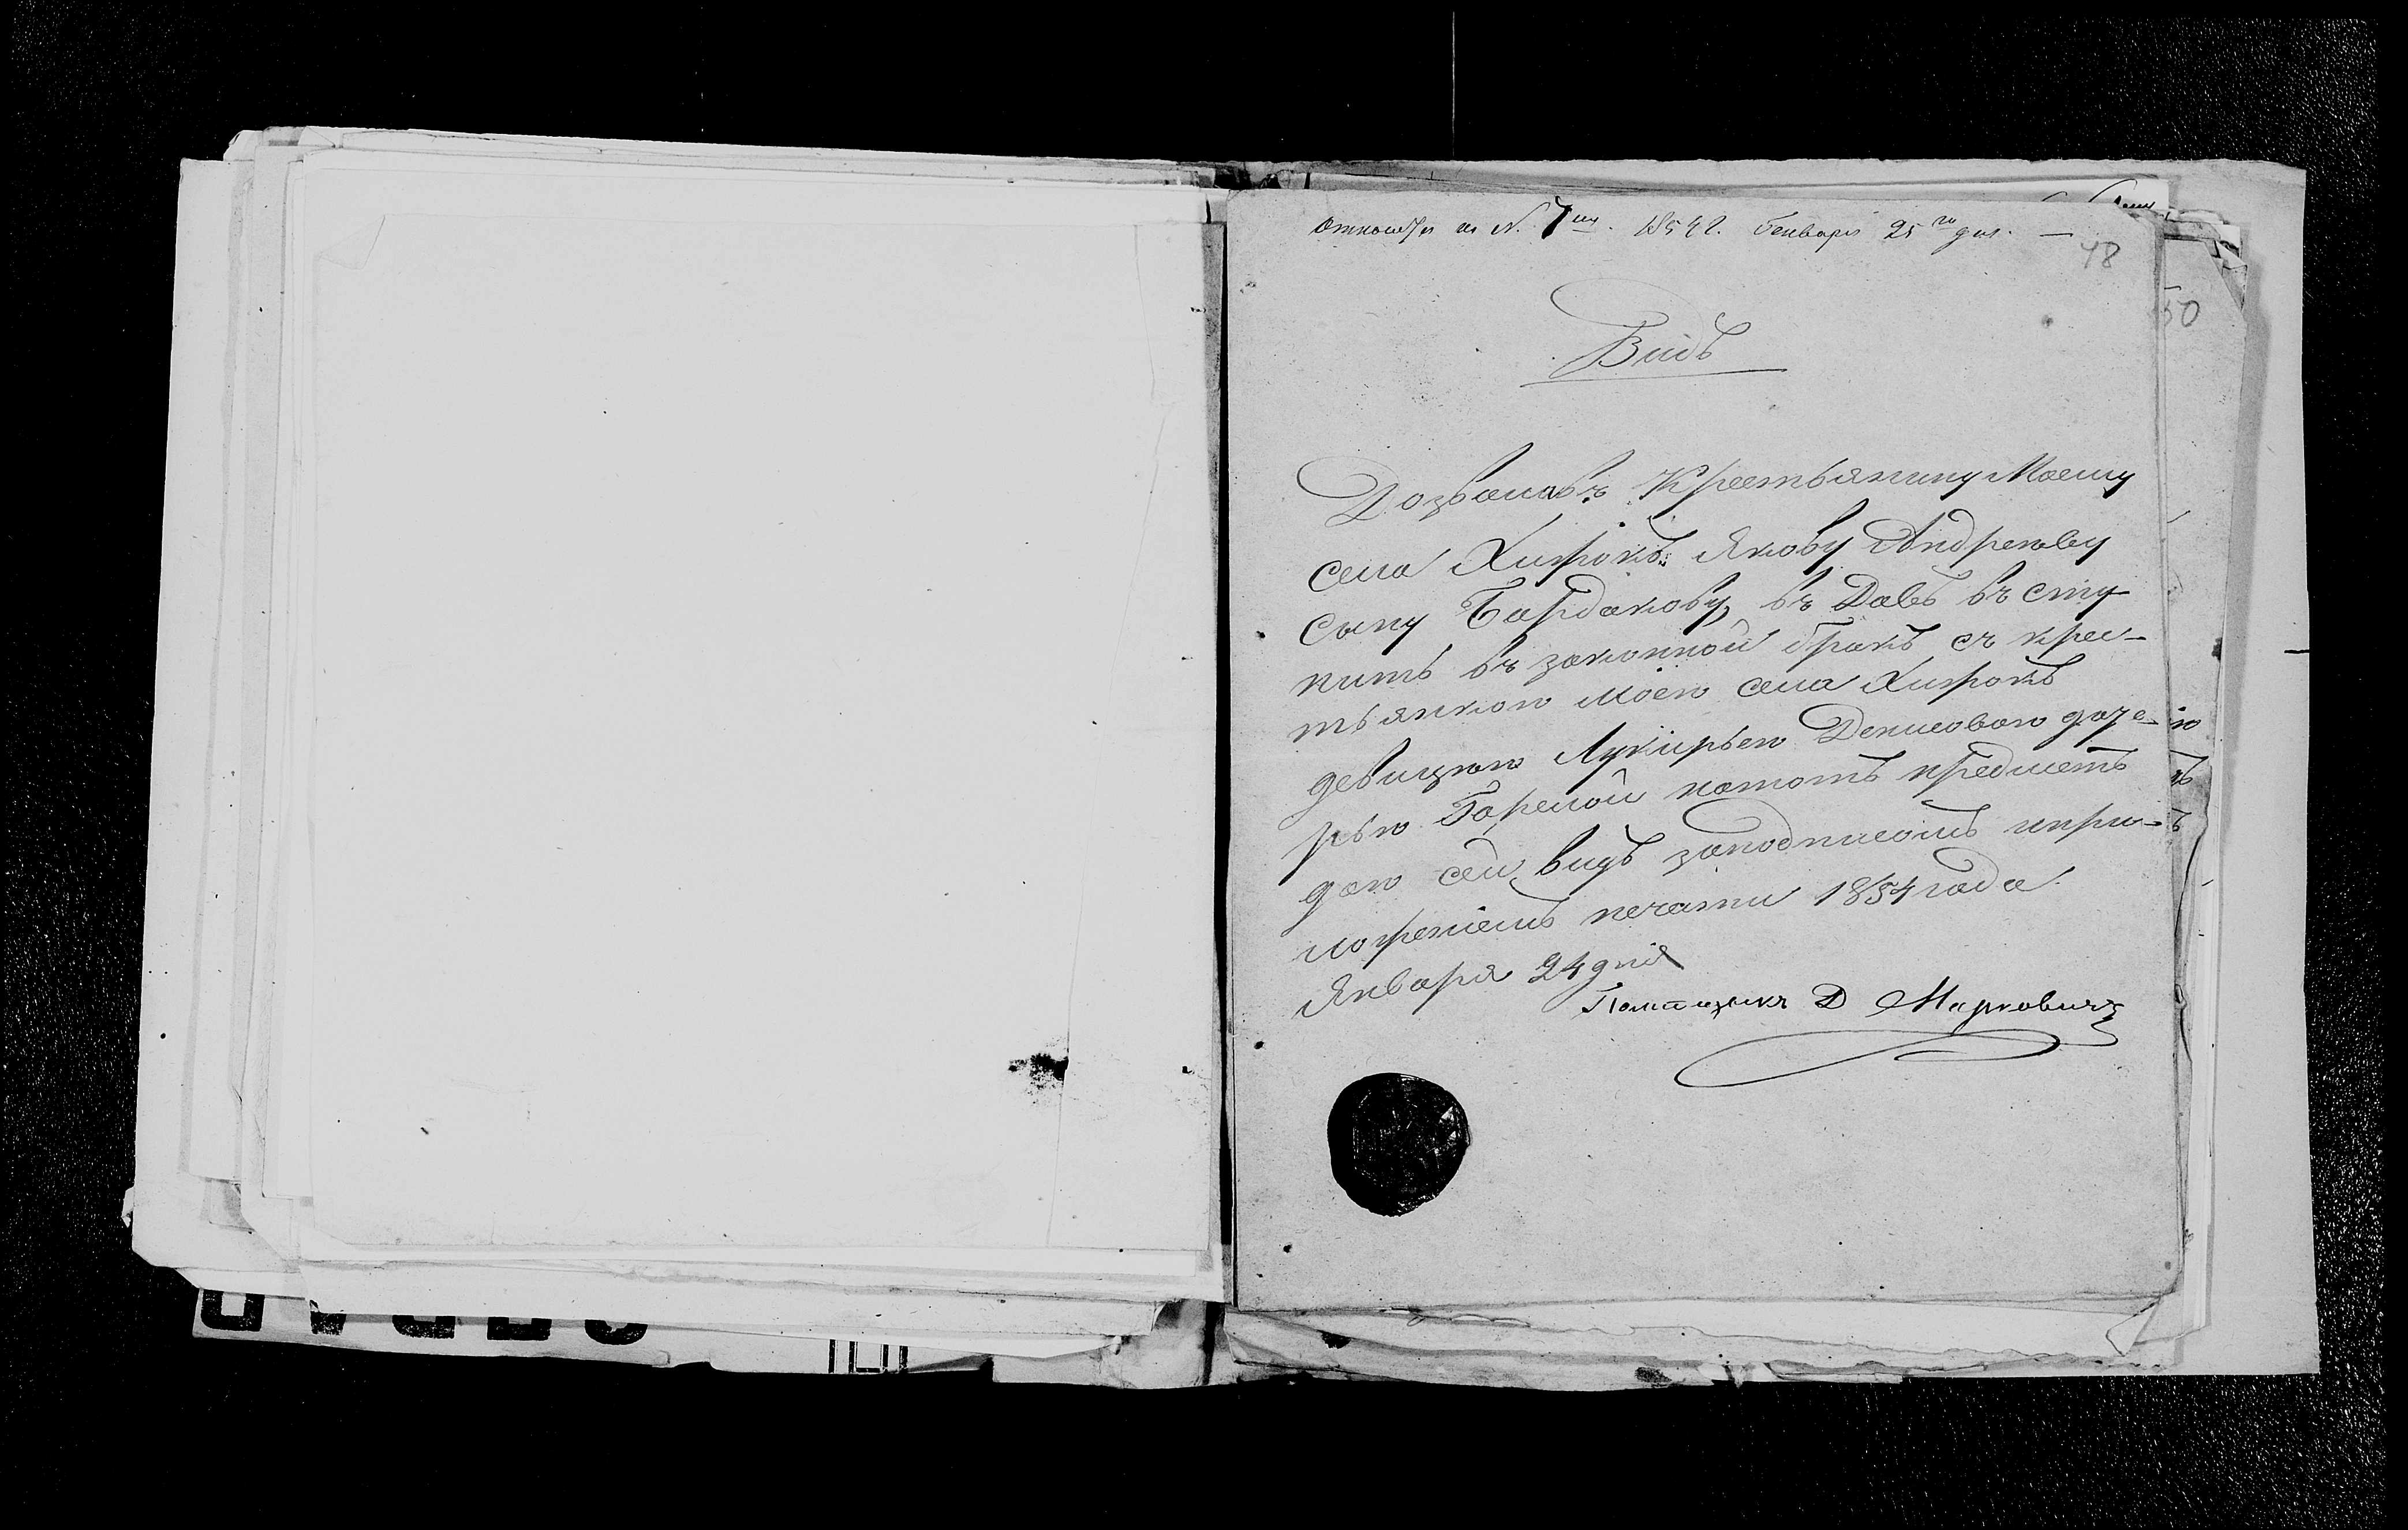 № 7 1854 г. Генваря 25 го дня. —
48
50
Видъ
Дозволивъ Крестьянину Моему
села Хирокъ Якову Андрееву
сыну Бардакову, въ Давъ въ сту
пить въ законной бракъ съ крес-
тьянкою моею села Хирокъ
девицею Лукирьею Денисовою доче-
рью Горелой натотъ предметъ
даю сей видъ заподписомъ ипри-
ложениемъ печати 1854 года
Января 24 дня
Помещикъ Д Марковичъ